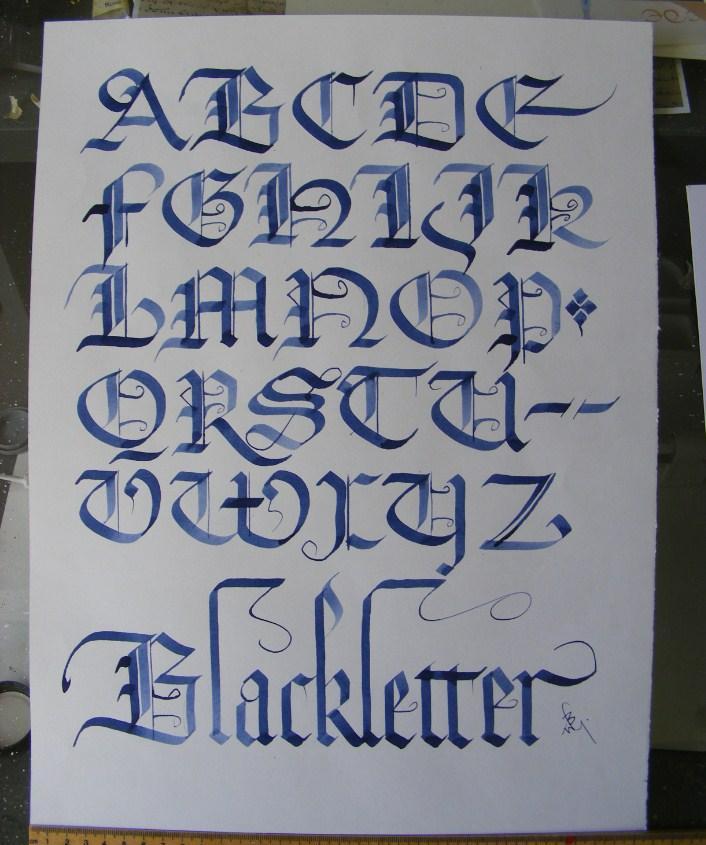 A B C D E
F G H I J K
L M N O P
Q R S T U
V W X Y Z
Blackletter